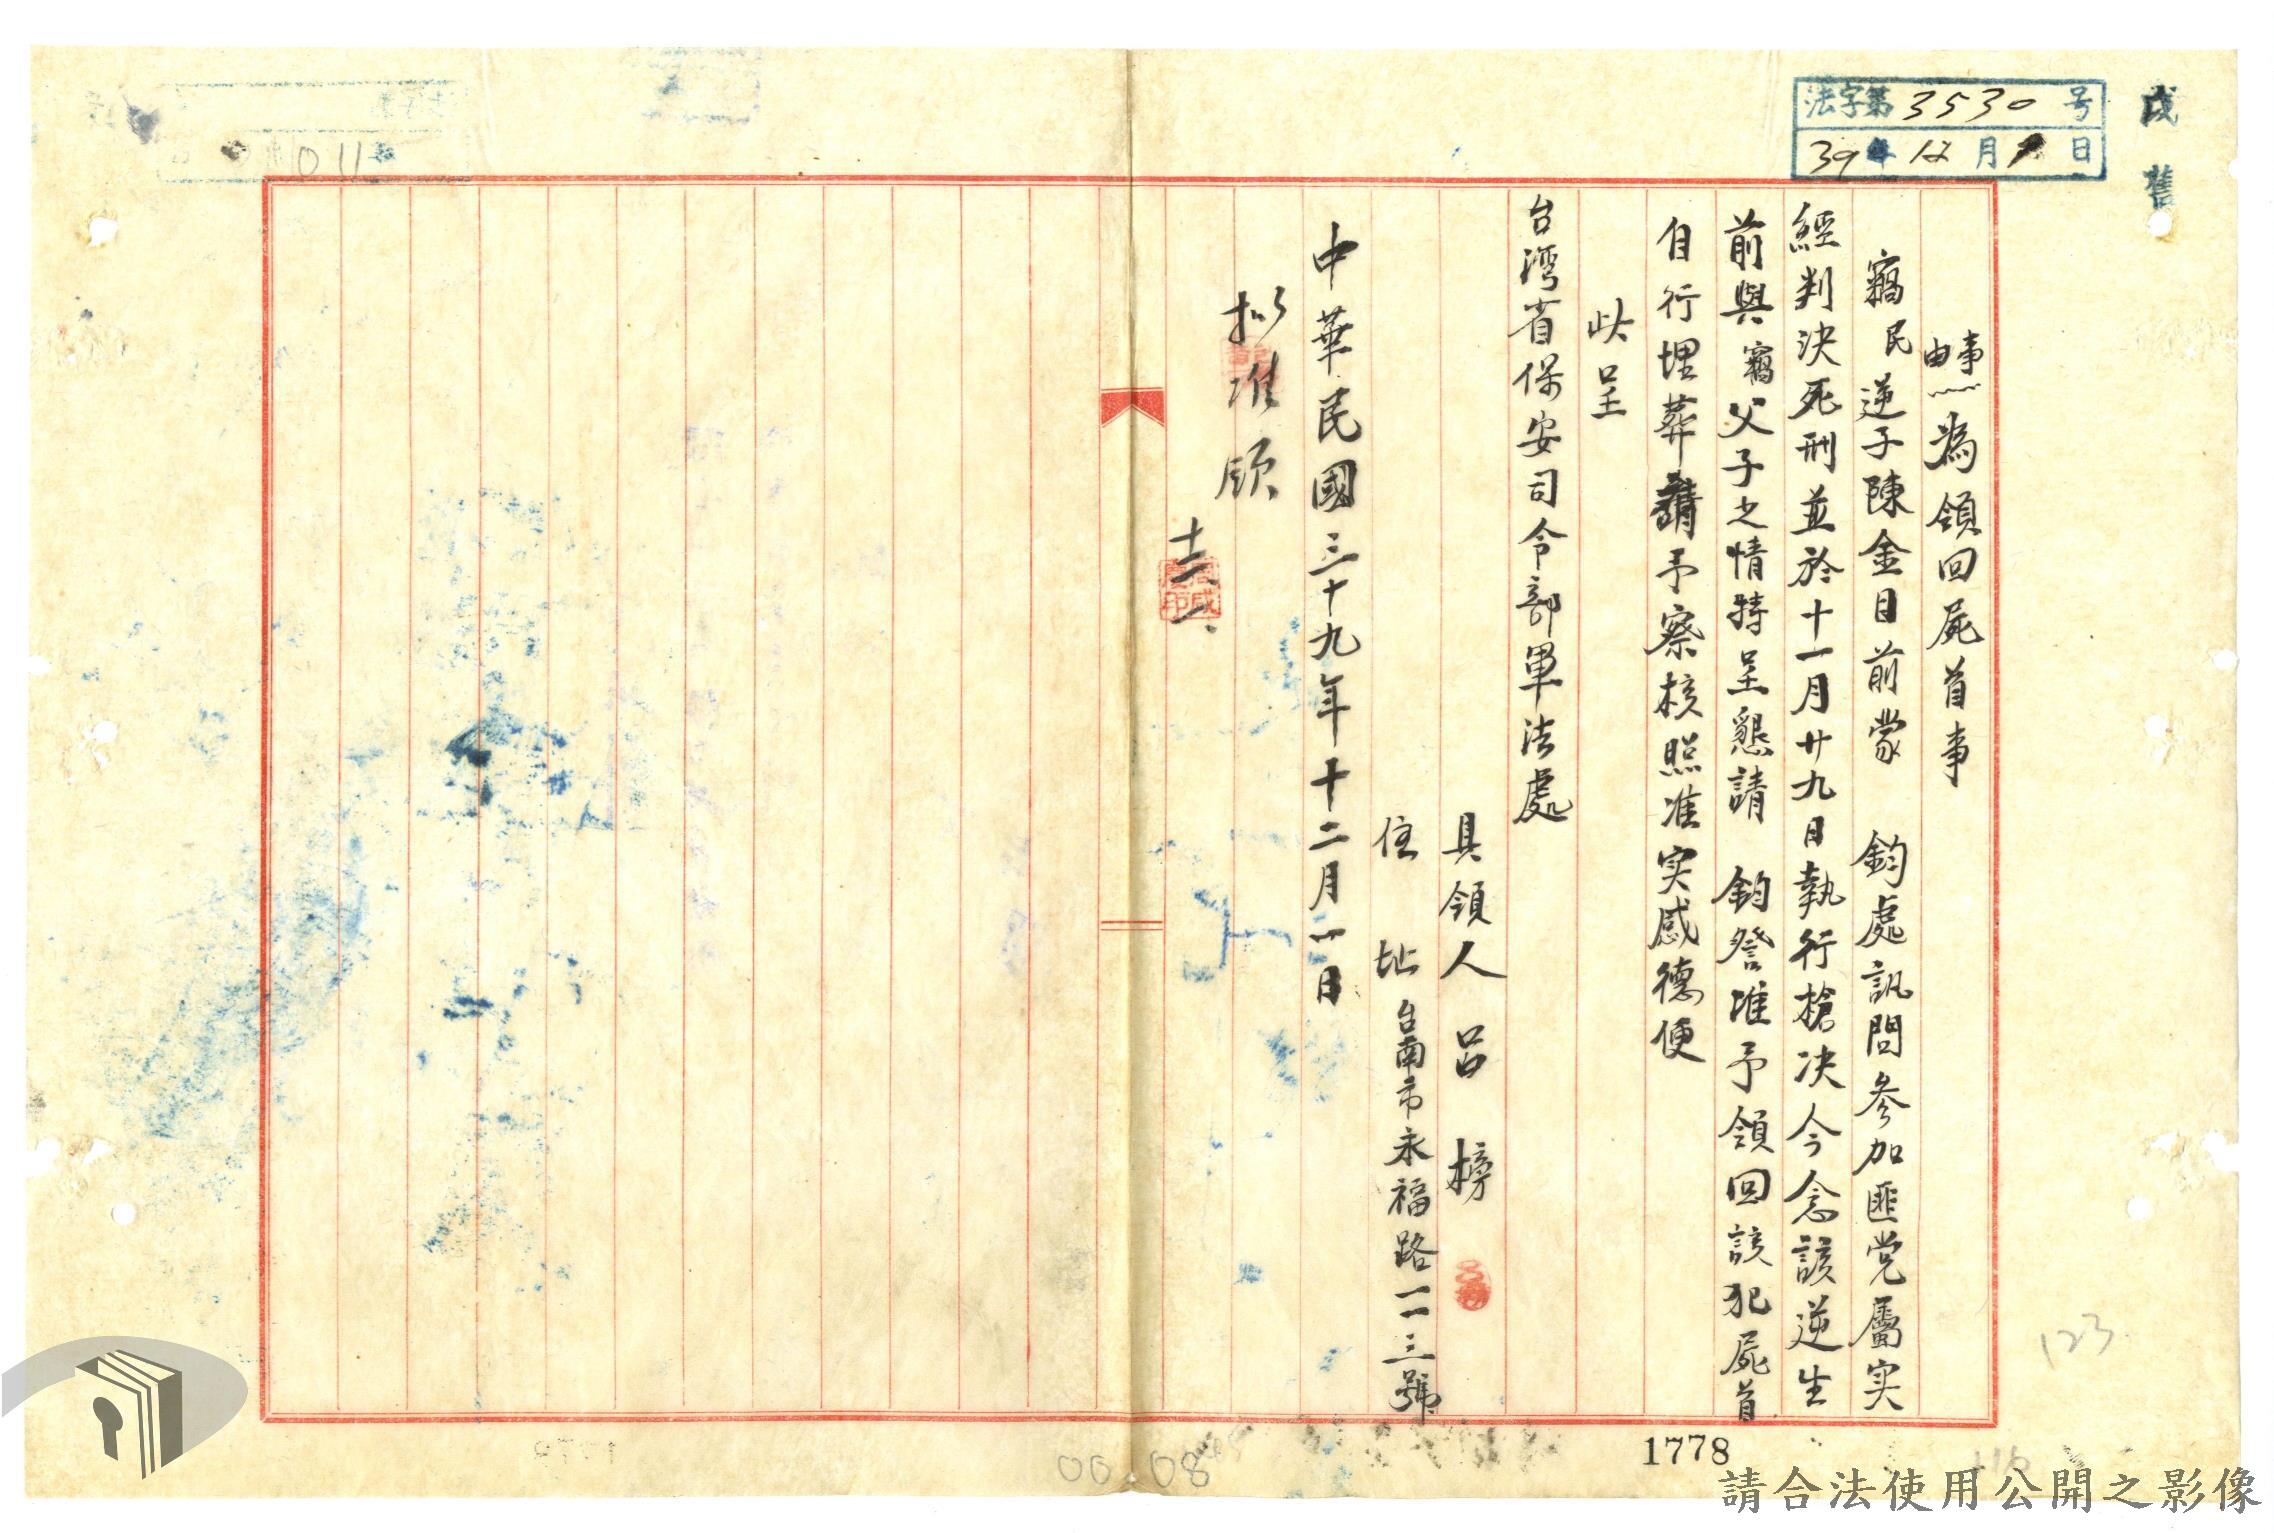 法字第3530号
39年12月1日
事由:為領回屍首事
竊民逆子陳金目前蒙　鈞處訊問參加匪党屬实
經判決死刑並於十一月廿九日執行槍決今念該逆生
前與竊父子之情特呈懇請　鈞登准予領回該犯屍首
自行埋葬請予察核照准实感德便
此呈
台湾省保安司令部軍法處
具領人　呂榜
住址　台南市永福路一一三號
中華民國三十九年十二月一日
拟准領
1778
123
請合法使用公開之影像